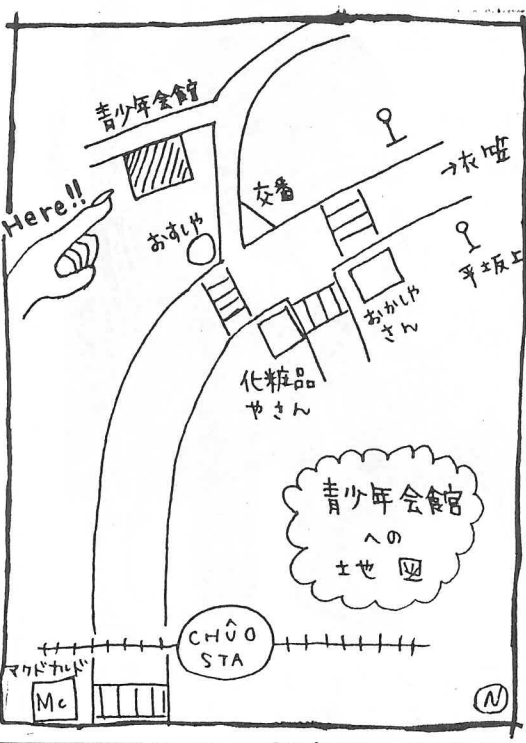 青少年会館
Here!!
おすしや
交番
→衣笠
平坂上
おかしや
さん
化粧品
やさん
青少年会館
への
土地 図
CHÛO
STA
マクドナルド
Mc
N